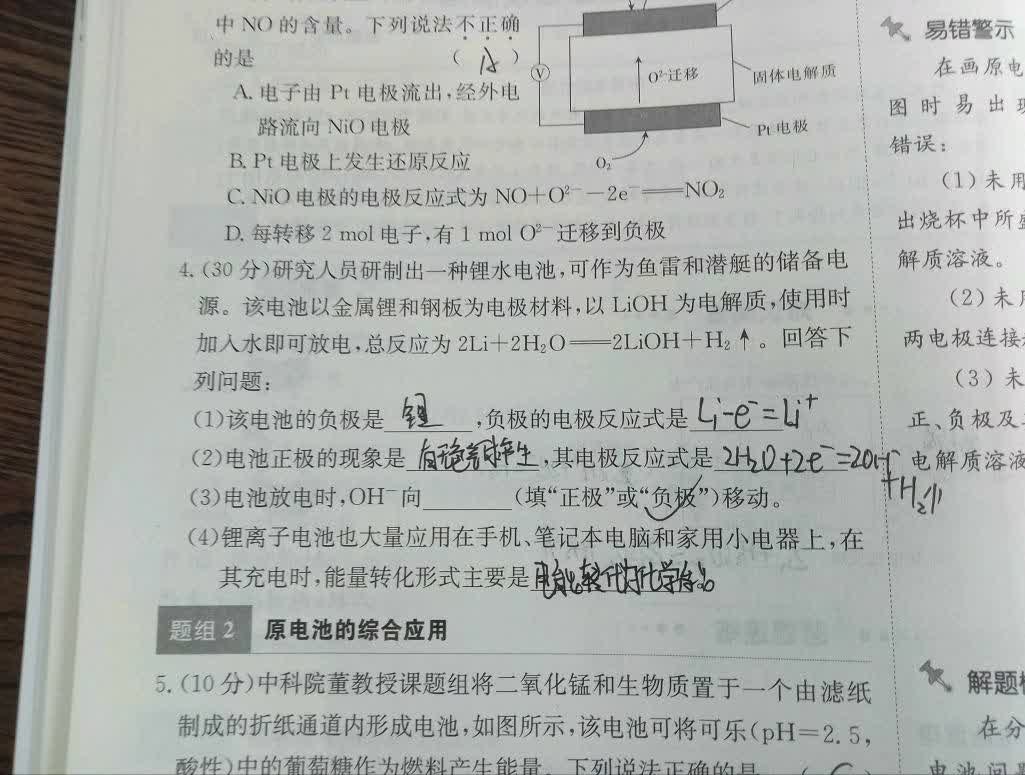 中NO的含量。下列说法不正确
的是 ( )
A. 电子由Pt电极流出,经外电
路流向NiO电极
B. Pt电极上发生还原反应
C. NiO电极的电极反应式为NO+O²⁻-2e⁻═NO₂
D. 每转移2 mol电子,有1 mol O²⁻迁移到负极
V
O²⁻迁移
固体电解质
Pt电极
O₂
4. (30分)研究人员研制出一种锂水电池,可作为鱼雷和潜艇的储备电
源。该电池以金属锂和钢板为电极材料,以LiOH为电解质,使用时
加入水即可放电,总反应为2Li+2H₂O═2LiOH+H₂↑。回答下
列问题:
(1)该电池的负极是 锂 ,负极的电极反应式是 Li-e⁻=Li⁺
(2)电池正极的现象是 有 产生,其电极反应式是 2H₂O+2e⁻=2OH⁻
+H₂↑
(3)电池放电时,OH⁻向________(填“正极”或“负极”)移动。
(4)锂离子电池也大量应用在手机、笔记本电脑和家用小电器上,在
其充电时,能量转化形式主要是 电能转化为化学能
题组2 原电池的综合应用
5. (10分)中科院董教授课题组将二氧化锰和生物质置于一个由滤纸
制成的折纸通道内形成电池,如图所示,该电池可将可乐(pH=2.5,
酸性)中的葡萄糖作为燃料产生能量。下列说法正确的是 (
易错警示
在画原电
图时易出现
错误:
(1)未用
出烧杯中所盛
解质溶液。
(2)未用
两电极连接
(3)未
正、负极及
电解质溶液
解题
在分
电池问题